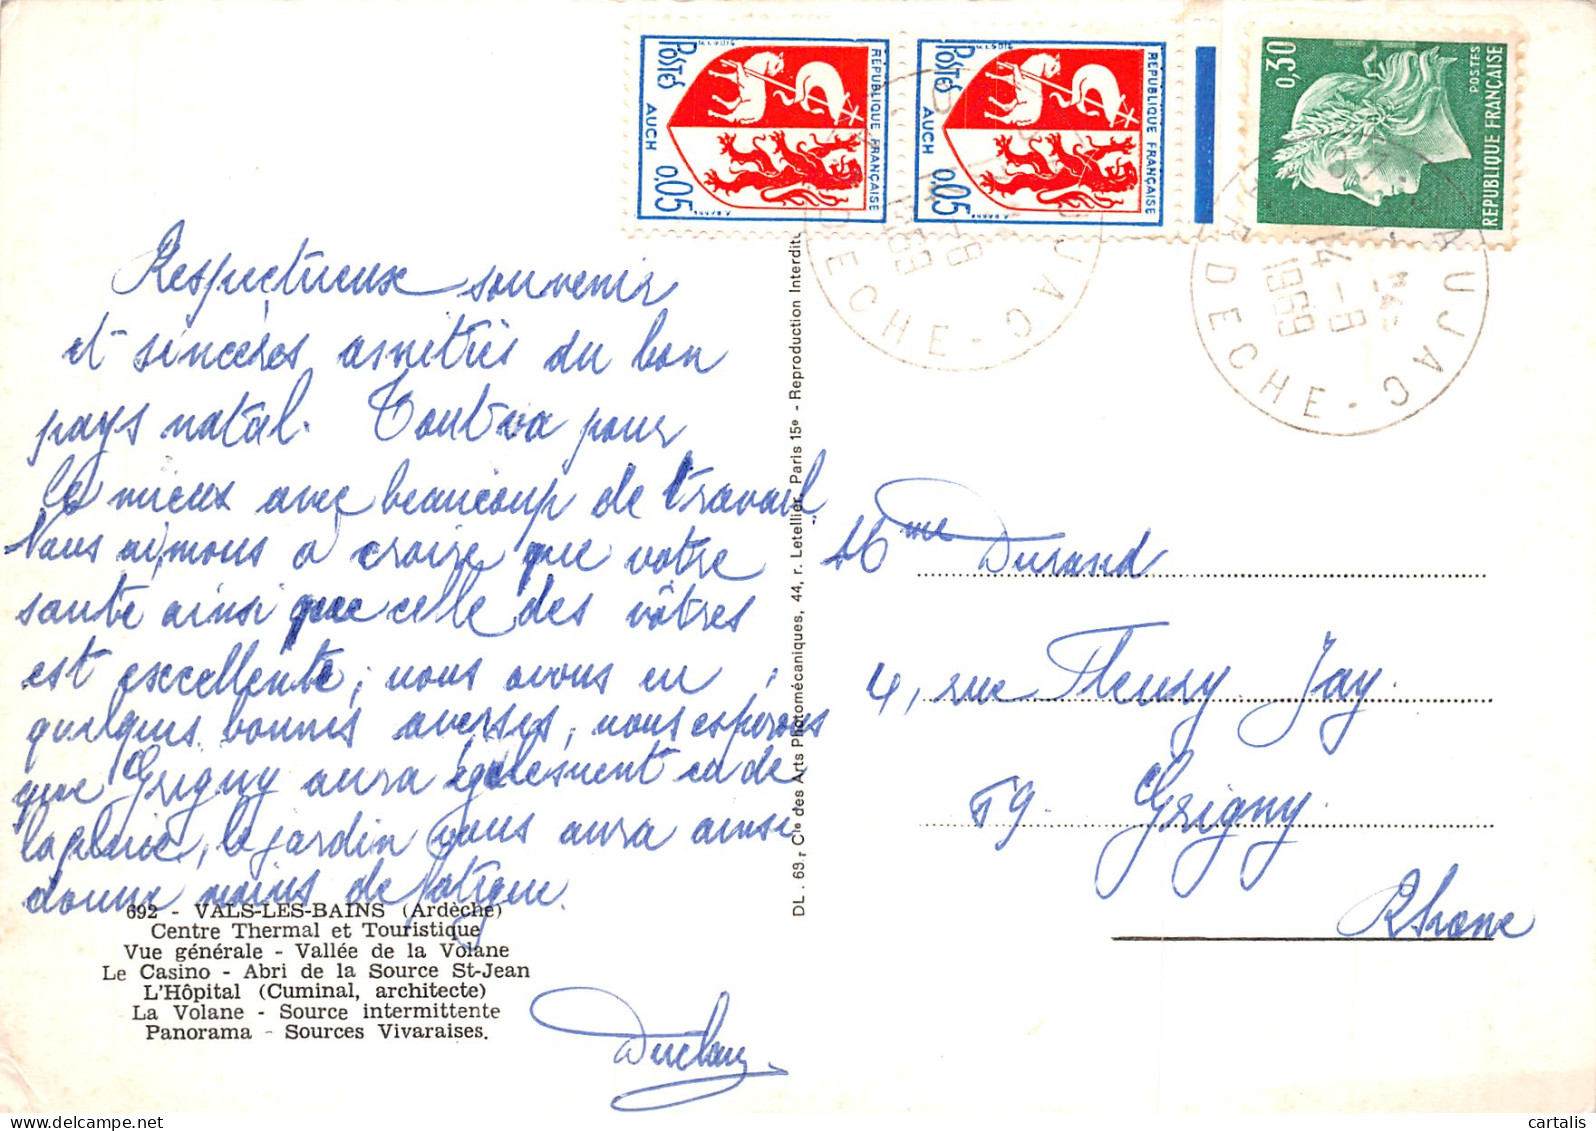 POSTES
AUCH
0,05
RÉPUBLIQUE FRANÇAISE
POSTES
AUCH
0,05
RÉPUBLIQUE FRANÇAISE
0,30
POSTES
RÉPUBLIQUE FRANÇAISE
JAUJAC
14-8
1969
ARDECHE
JAUJAC
14-8
1969
ARDECHE
Respectueux souvenir
et sincères amitiés du bon
pays natal. Tout va pour
le mieux avec beaucoup de travail
Nous aimons a croire que votre
santé ainsi que celle des vôtres
est excellente, nous avons eu
quelques bonnes averses, nous espérons
que Grigny aura également eu de
la pluie, le jardin vous aura ainsi
donné moins de fatigue.
692 - VALS-LES-BAINS (Ardèche)
Centre Thermal et Touristique
Vue générale - Vallée de la Volane
Le Casino - Abri de la Source St-Jean
L'Hôpital (Cuminal, architecte)
La Volane - Source intermittente
Panorama - Sources Vivaraises.
DL. 69, Cie des Arts Photomécaniques, 44, r. Letellier, Paris 15e - Reproduction Interdite
Mme Durand
4, rue Fleury Jay.
69. Grigny.
Rhône
cartalis